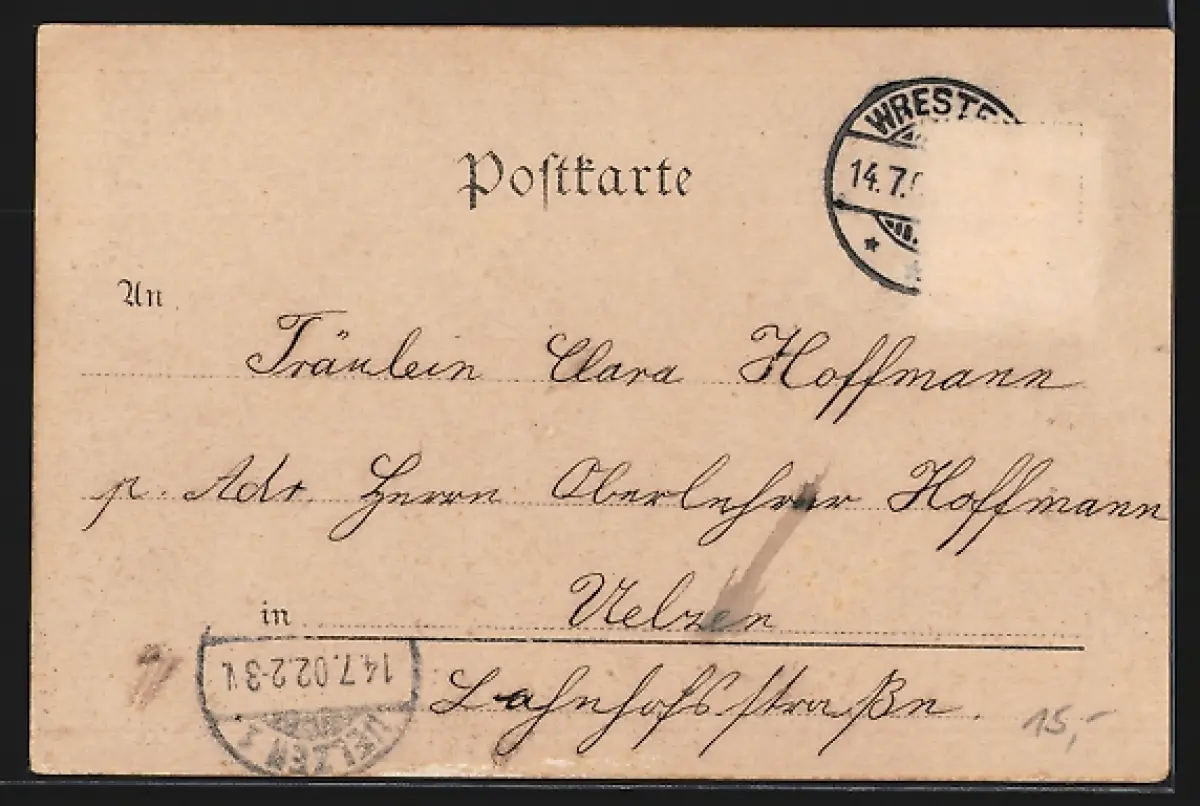 WRESTE
14.7.
Postkarte
An
Fräulein Clara Hoffmann
p. Adr. Herrn Oberlehrer Hoffmann
in Uelzen
Bahnhofsstraße.
14.7.02.2-3 N.
UELZEN 1
15,-